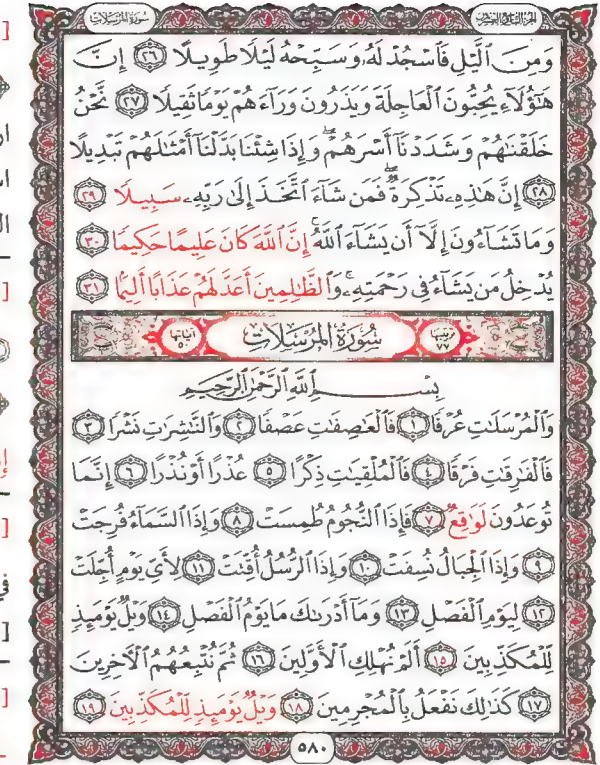 سورة المرسلات
الجزء التاسع والعشرون
وَمِنَ ٱلَّيْلِ فَٱسْجُدْ لَهُۥ وَسَبِّحْهُ لَيْلًا طَوِيلًا ٢٦ إِنَّ
هَٰٓؤُلَآءِ يُحِبُّونَ ٱلْعَاجِلَةَ وَيَذَرُونَ وَرَآءَهُمْ يَوْمًا ثَقِيلًا ٢٧ نَّحْنُ
خَلَقْنَٰهُمْ وَشَدَدْنَآ أَسْرَهُمْ ۖ وَإِذَا شِئْنَا بَدَّلْنَآ أَمْثَٰلَهُمْ تَبْدِيلًا
٢٨ إِنَّ هَٰذِهِۦ تَذْكِرَةٌ ۖ فَمَن شَآءَ ٱتَّخَذَ إِلَىٰ رَبِّهِۦ سَبِيلًا ٢٩
وَمَا تَشَآءُونَ إِلَّآ أَن يَشَآءَ ٱللَّهُ ۚ إِنَّ ٱللَّهَ كَانَ عَلِيمًا حَكِيمًا ٣٠
يُدْخِلُ مَن يَشَآءُ فِى رَحْمَتِهِۦ ۚ وَٱلظَّٰلِمِينَ أَعَدَّ لَهُمْ عَذَابًا أَلِيمًۢا ٣١
ترتيبها ٧٧ سُورَةُ المُرْسَلَات آياتها ٥٠
بِسْمِ ٱللَّهِ ٱلرَّحْمَٰنِ ٱلرَّحِيمِ
وَٱلْمُرْسَلَٰتِ عُرْفًا ١ فَٱلْعَٰصِفَٰتِ عَصْفًا ٢ وَٱلنَّٰشِرَٰتِ نَشْرًا ٣
فَٱلْفَٰرِقَٰتِ فَرْقًا ٤ فَٱلْمُلْقِيَٰتِ ذِكْرًا ٥ عُذْرًا أَوْ نُذْرًا ٦ إِنَّمَا
تُوعَدُونَ لَوَٰقِعٌ ٧ فَإِذَا ٱلنُّجُومُ طُمِسَتْ ٨ وَإِذَا ٱلسَّمَآءُ فُرِجَتْ
٩ وَإِذَا ٱلْجِبَالُ نُسِفَتْ ١٠ وَإِذَا ٱلرُّسُلُ أُقِّتَتْ ١١ لِأَىِّ يَوْمٍ أُجِّلَتْ
١٢ لِيَوْمِ ٱلْفَصْلِ ١٣ وَمَآ أَدْرَىٰكَ مَا يَوْمُ ٱلْفَصْلِ ١٤ وَيْلٌ يَوْمَئِذٍ
لِّلْمُكَذِّبِينَ ١٥ أَلَمْ نُهْلِكِ ٱلْأَوَّلِينَ ١٦ ثُمَّ نُتْبِعُهُمُ ٱلْءَاخِرِينَ
١٧ كَذَٰلِكَ نَفْعَلُ بِٱلْمُجْرِمِينَ ١٨ وَيْلٌ يَوْمَئِذٍ لِّلْمُكَذِّبِينَ ١٩
٥٨٠